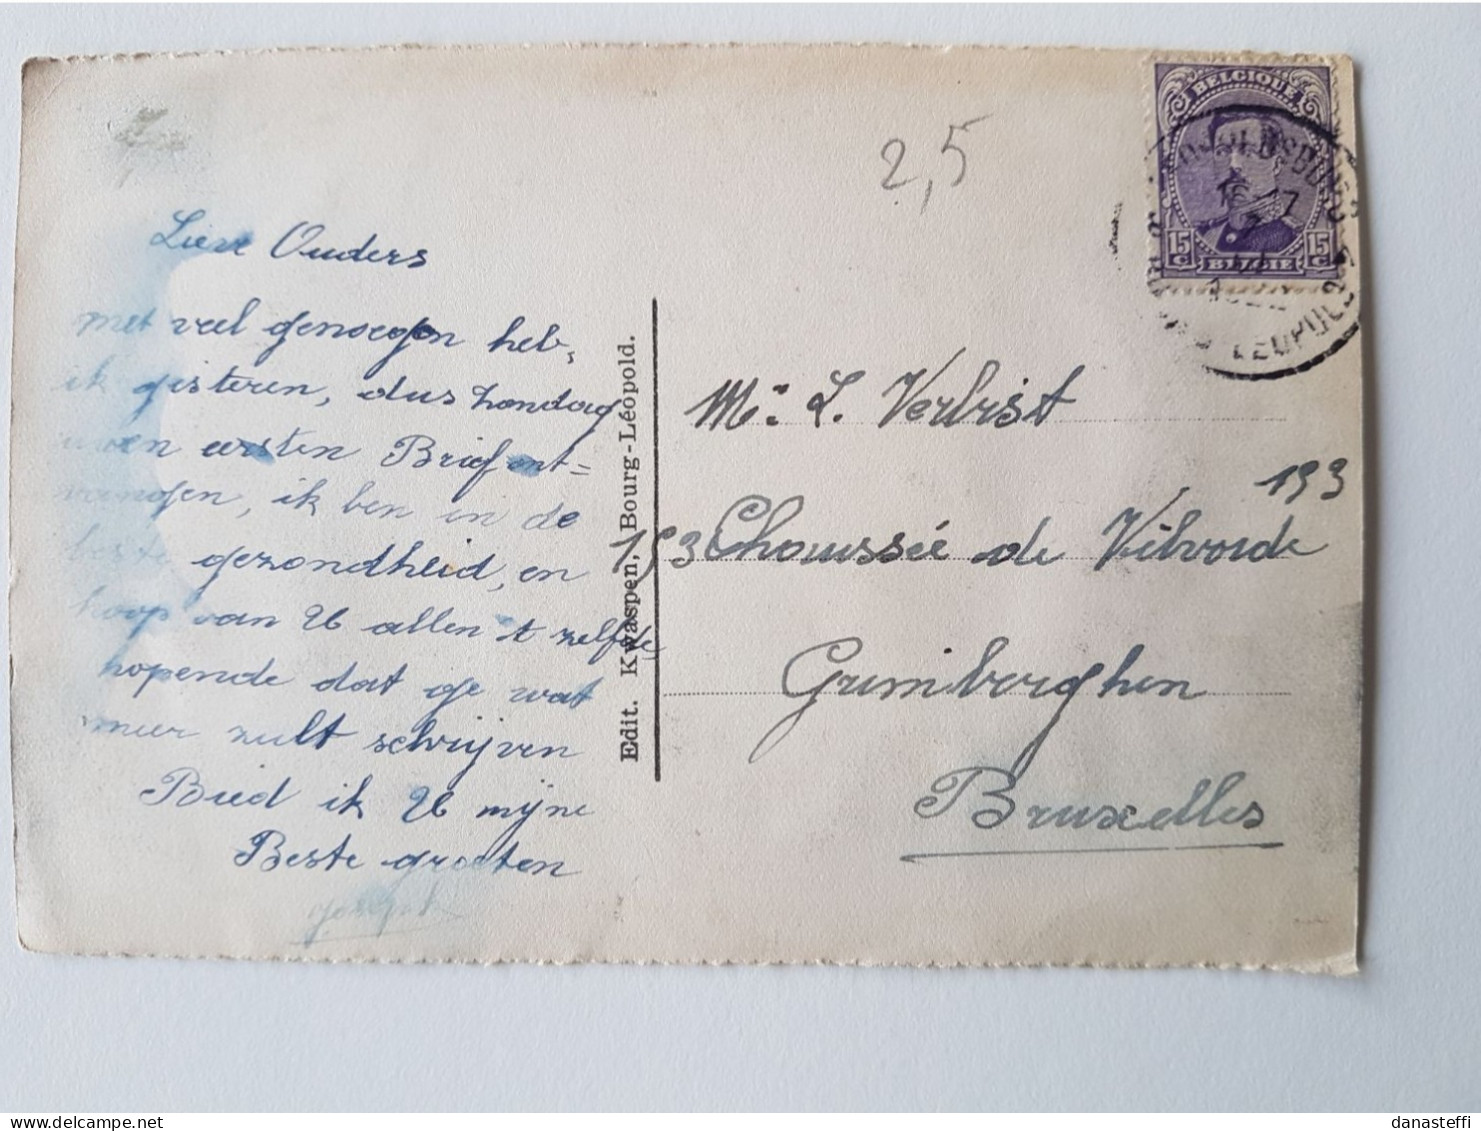 2,5
BELGIQUE
15 C 15 C
BELGIË
LEOPOLDSBURG
Lieve Ouders
met veel genoegen heb,
ik gisteren, dus Zondag
uwen eersten Brief ont=
vangen, ik ben in de
beste gezondheid, en
hoop van U allen 't zelfde
hopende dat ge wat
meer zult schrijven
Bied ik U mijne
Beste groeten
Joseph
Edit. Kwaspen, Bourg-Léopold.
Mr. L. Verbist
193
193 Chaussée de Vilvorde
Grimberghen
Bruxelles
danasteffi